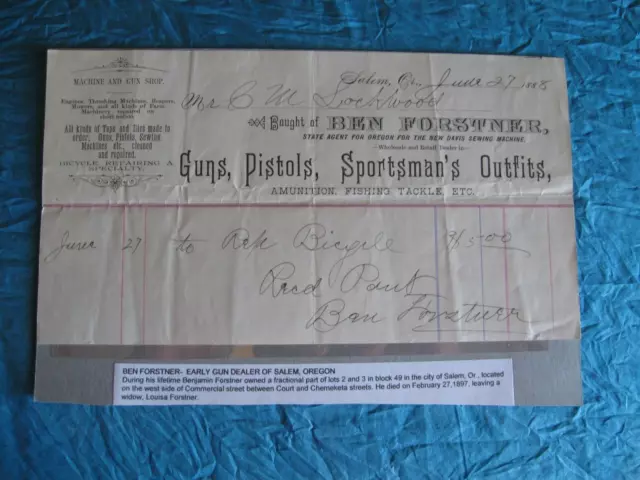 MACHINE AND GUN SHOP.
Engines, Threshing Machines, Reapers,
Mowers, and all kinds of Farm
Machinery repaired on
short notice.
All kinds of Taps and Dies made to
order. Guns, Pistols, Sewing
Machines etc., cleaned
and repaired.
BICYCLE REPAIRING A
SPECIALTY.
Salem, Or., June 27 1888
Mr C M Lockwood
Bought of BEN FORSTNER,
STATE AGENT FOR OREGON FOR THE NEW DAVIS SEWING MACHINE.
Wholesale and Retail Dealer in
Guns, Pistols, Sportsman's Outfits,
AMUNITION, FISHING TACKLE, ETC.
June 27 to Rep Bicycle
Recd
Ben Forstner
BEN FORSTNER- EARLY GUN DEALER OF SALEM, OREGON
During his lifetime Benjamin Forstner owned a fractional part of lots 2 and 3 in block 49 in the city of Salem, Or., located
on the west side of Commercial street between Court and Chemeketa streets. He died on February 27,1897, leaving a
widow, Louisa Forstner.